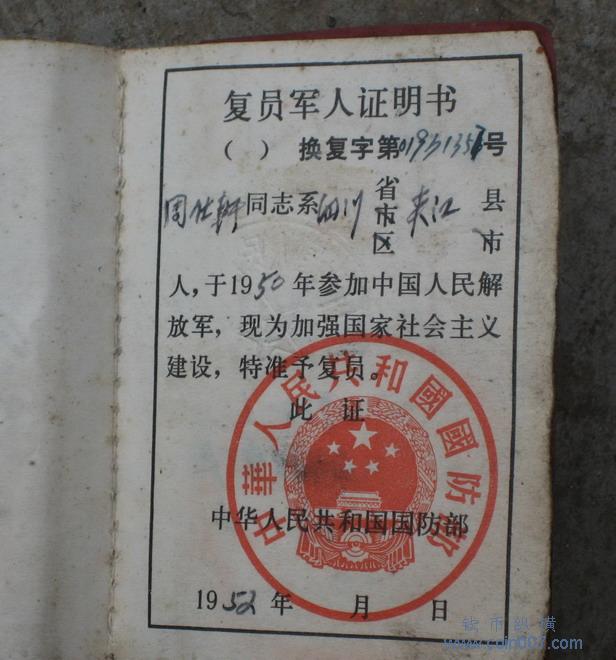 复员军人证明书
( ) 换复字第01931357号
周仕轩同志系四川 省市区 夹江 县市
人，于1950年参加中国人民解
放军，现为加强国家社会主义
建设，特准予复员。
此 证
中华人民共和国国防部
1952年 月 日
中華人民共和國國防部
钱币纵横
www.coin007.com